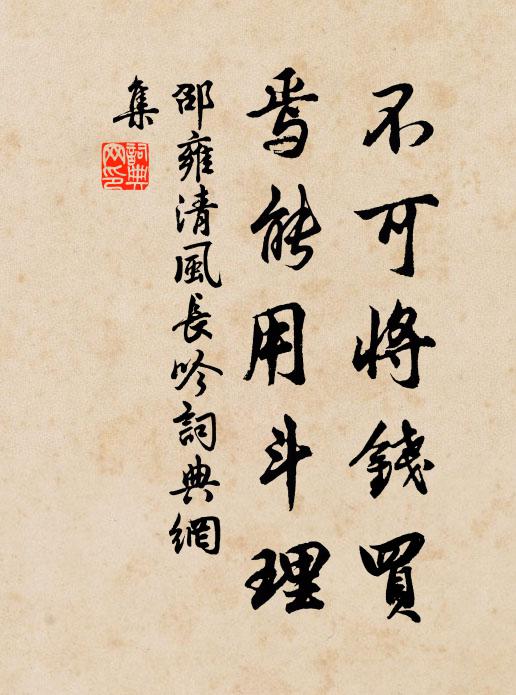 不可將錢買
焉能用斗理
邵雍清風長吟詞典網
集
詞典網印